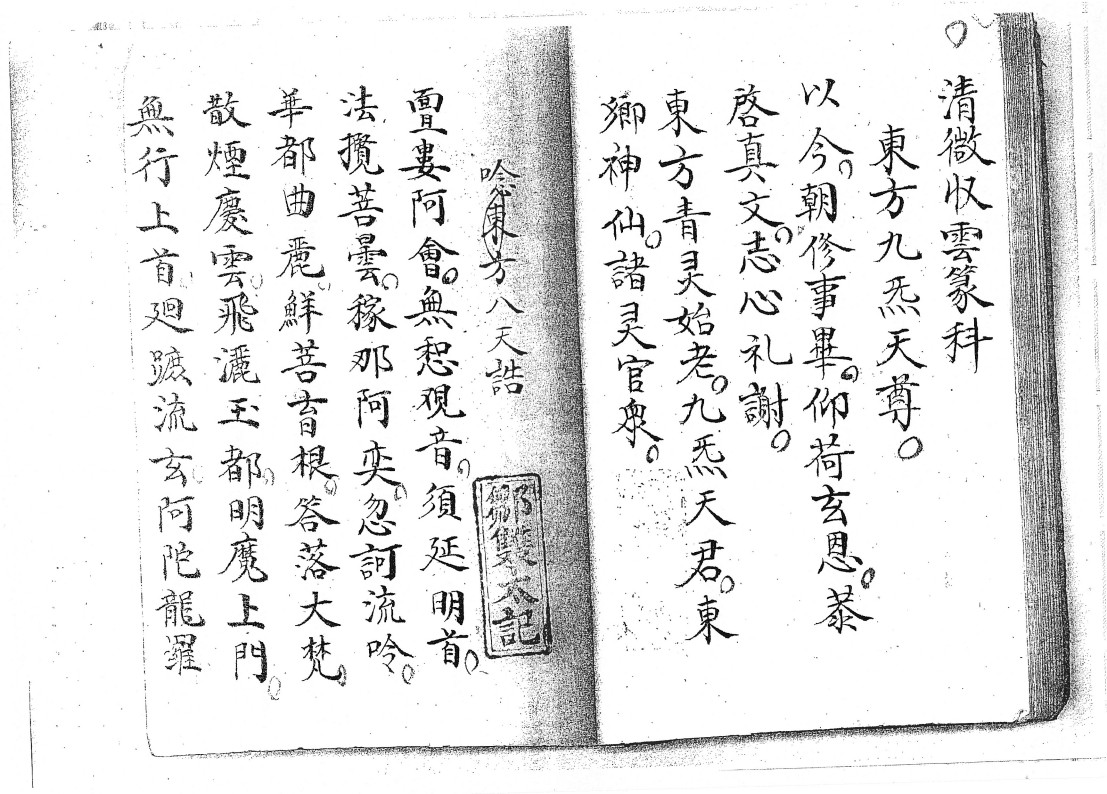 清微收雲篆科
東方九炁天尊。
以今。朝修事畢。仰荷玄恩。恭
啓真文。志心礼謝。
東方青灵始老。九炁天君。東
鄉神仙。諸灵官衆。
唸東方八天誥
亶婁阿會。無惒觀音。須延明首。
法攬菩曇。稼那阿奕。忽訶流吟。
華都曲麗。鮮菩育根。答落大梵。
散煙慶雲。飛灑玉都。明魔上門。
無行上首。廻蹠流玄。阿陀龍羅